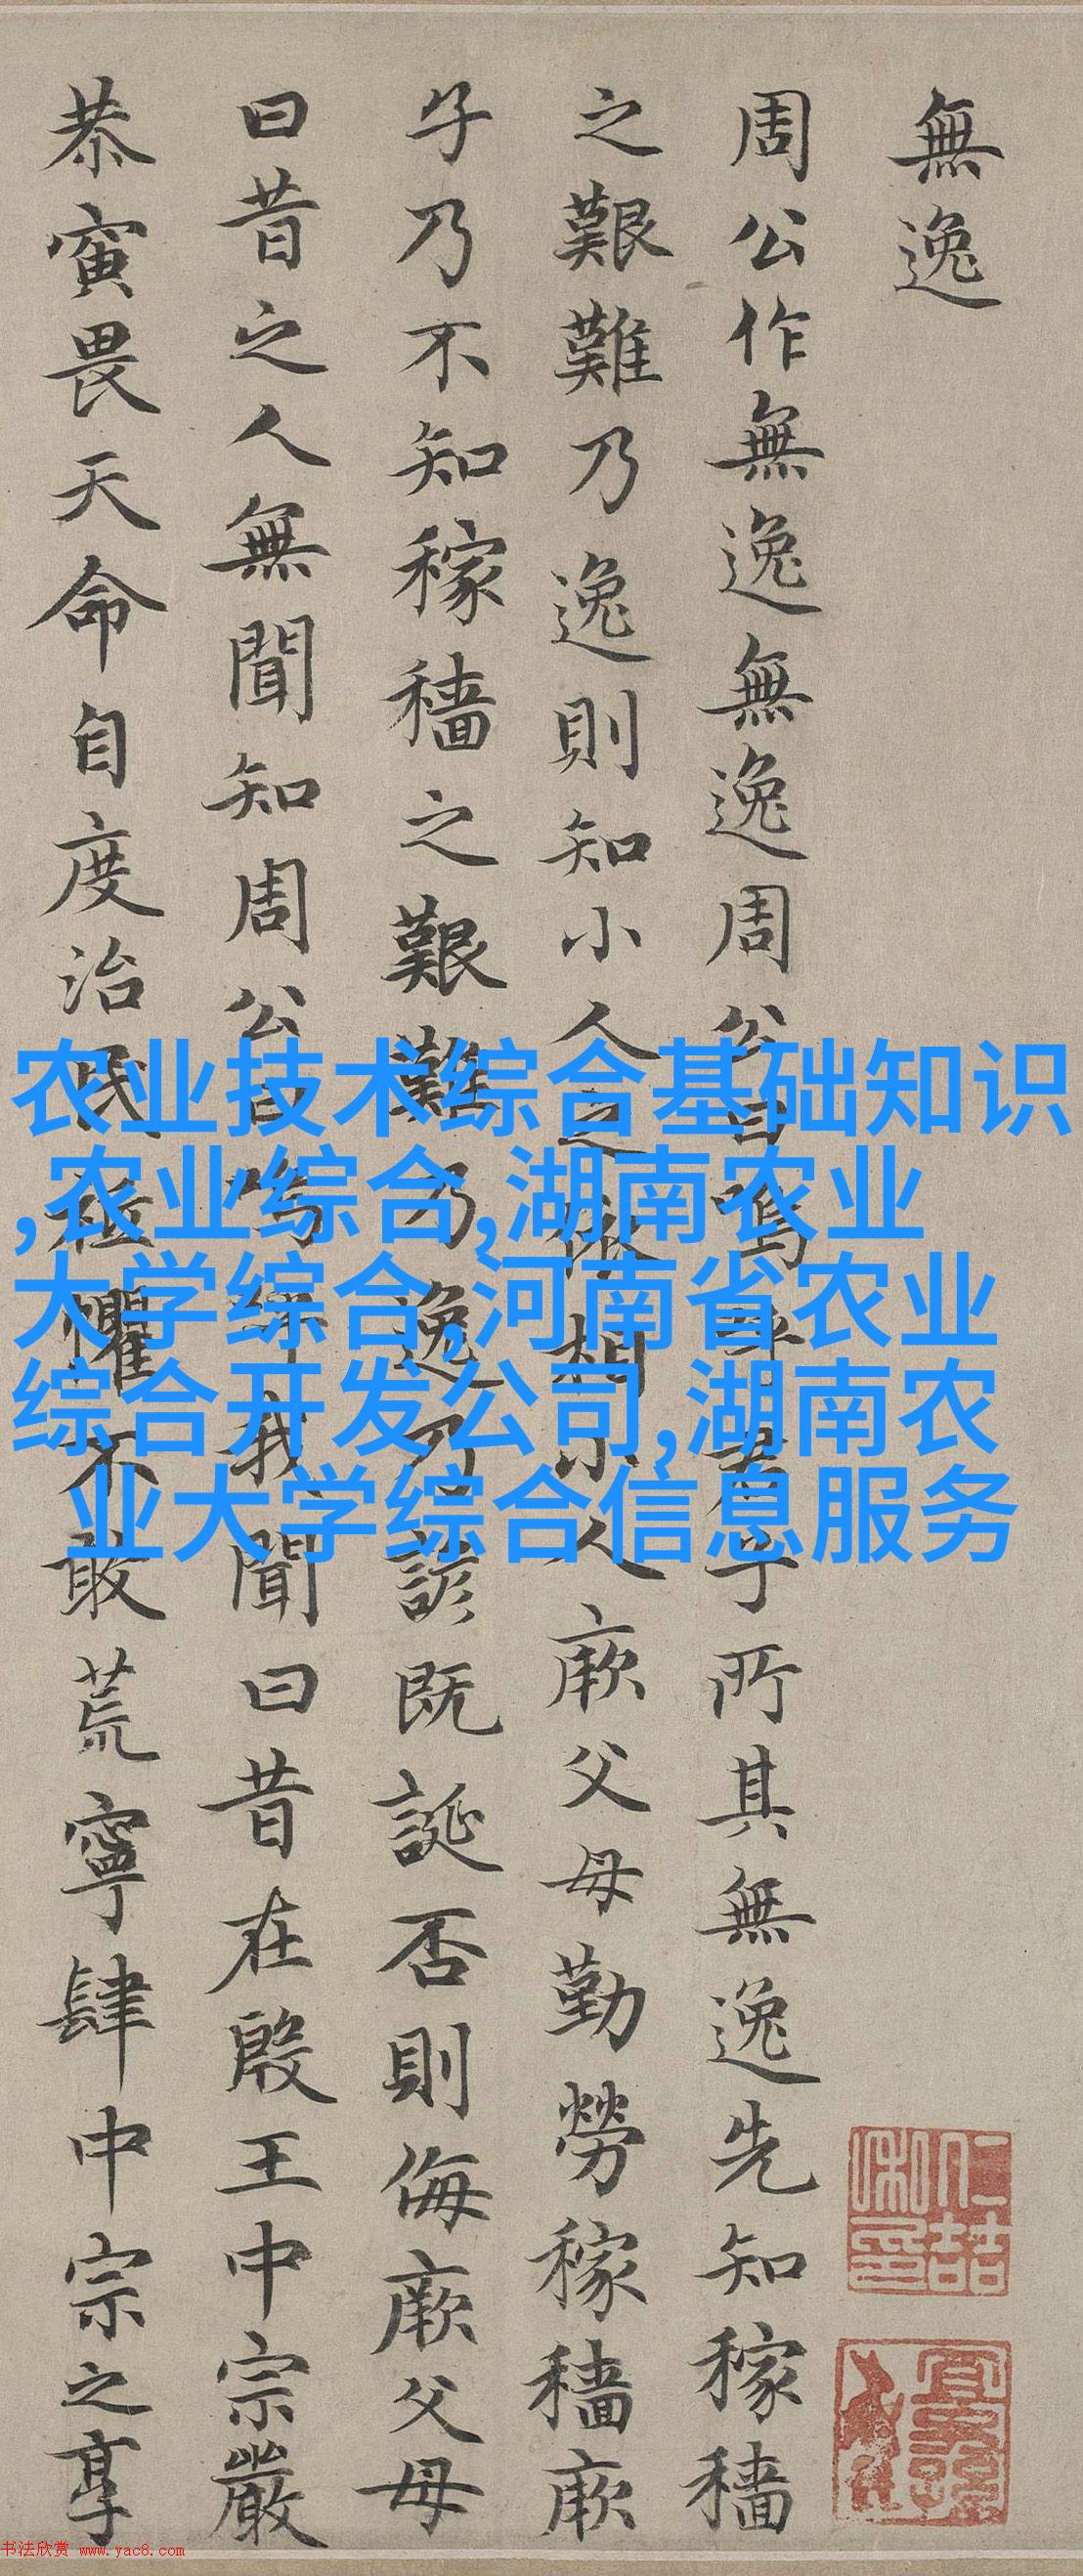 無逸
周公作無逸無逸周公曰嗚乎君子所其無逸先知稼穡
之艱難乃逸則知小人之依相小人厥父母勤勞稼穡厥
子乃不知稼穡之艱難乃逸乃諺既誕否則侮厥父母
曰昔之人無聞知周公曰嗚呼我聞曰昔在殷王中宗嚴
恭寅畏天命自度治民祗懼不敢荒寧肆中宗之享
农业技术综合基础知识
,农业综合,湖南农业
大学综合,河南省农业
综合开发公司,湖南农
业大学综合信息服务
书法欣赏 www.yac8.com